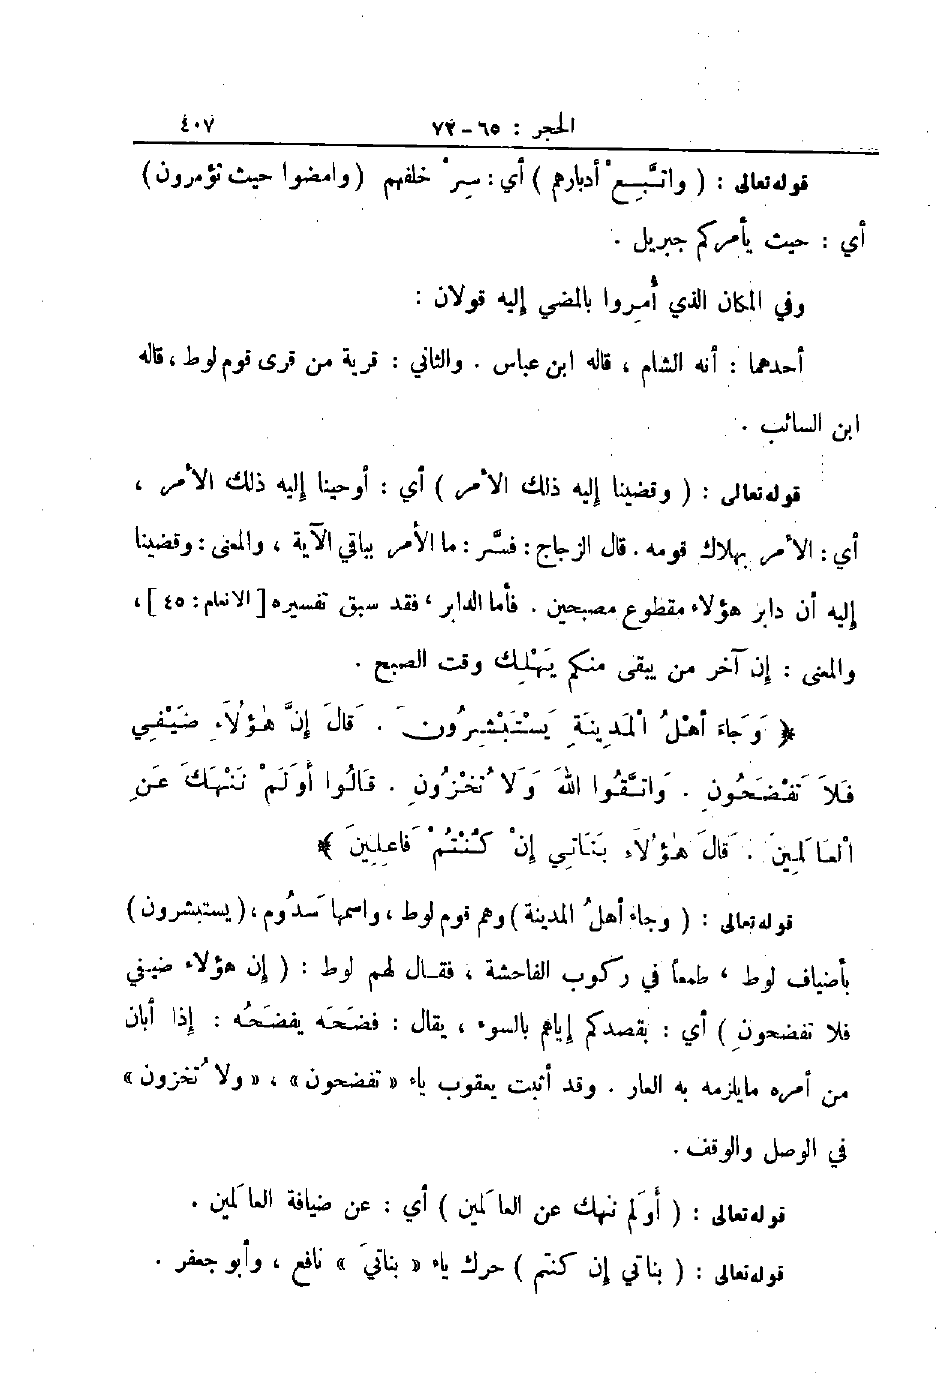 الحجر : ٦٥ - ٧٢ ٤٠٧
قوله تعالى : ( واتَّبِعْ أدبارهم ) أي : سِرْ خلفهم ( وامضوا حيث تؤمرون )
أي : حيث يأمركم جبريل .
وفي المكان الذي أُمِروا بالمضي إليه قولان :
أحدهما : أنه الشام ، قاله ابن عباس . والثاني : قرية من قرى قوم لوط ، قاله
ابن السائب .
قوله تعالى : ( وقضينا إليه ذلك الأمر ) أي : أوحينا إليه ذلك الأمر ،
أي : الأمر بهلاك قومه . قال الزجاج : فسَّر : ما الأمر بباقي الآية ، والمعنى : وقضينا
إليه أن دابر هؤلاء مقطوع مصبحين . فأما الدابر ، فقد سبق تفسيره [ الانعام : ٤٥ ] ،
والمعنى : إن آخر من يبقى منكم يَهْلِك وقت الصبح .
﴿ وَجَاءَ أَهْلُ الْمَدِينَةِ يَسْتَبْشِرُونَ . قَالَ إِنَّ هٰؤُلَاءِ ضَيْفِي
فَلَا تَفْضَحُونِ . وَاتَّقُوا اللهَ وَلَا تُخْزُونِ . قَالُوا أَوَلَمْ نَنْهَكَ عَنِ
الْعَالَمِينَ . قَالَ هٰؤُلَاءِ بَنَاتِي إِنْ كُنْتُمْ فَاعِلِينَ ﴾
قوله تعالى : ( وجاء أهلُ المدينة ) وهم قوم لوط ، واسمها سَدُوم ، ( يستبشرون )
بأضياف لوط ، طمعاً في ركوب الفاحشة ، فقال لهم لوط : ( إن هؤلاء ضيفي
فلا تفضحونِ ) أي : بقصدكم إياهم بالسوء ، يقال : فضَحَه يفضَحُه : إذا أبان
من أمره ما يلزمه به العار . وقد أثبت يعقوب ياء « تفضحون » ، « ولا تُخزون »
في الوصل والوقف .
قوله تعالى : ( أَوَلم ننهك عن العالَمين ) أي : عن ضيافة العالَمين .
قوله تعالى : ( بناتي إن كنتم ) حرك ياء « بناتيَ » نافع ، وأبو جعفر .